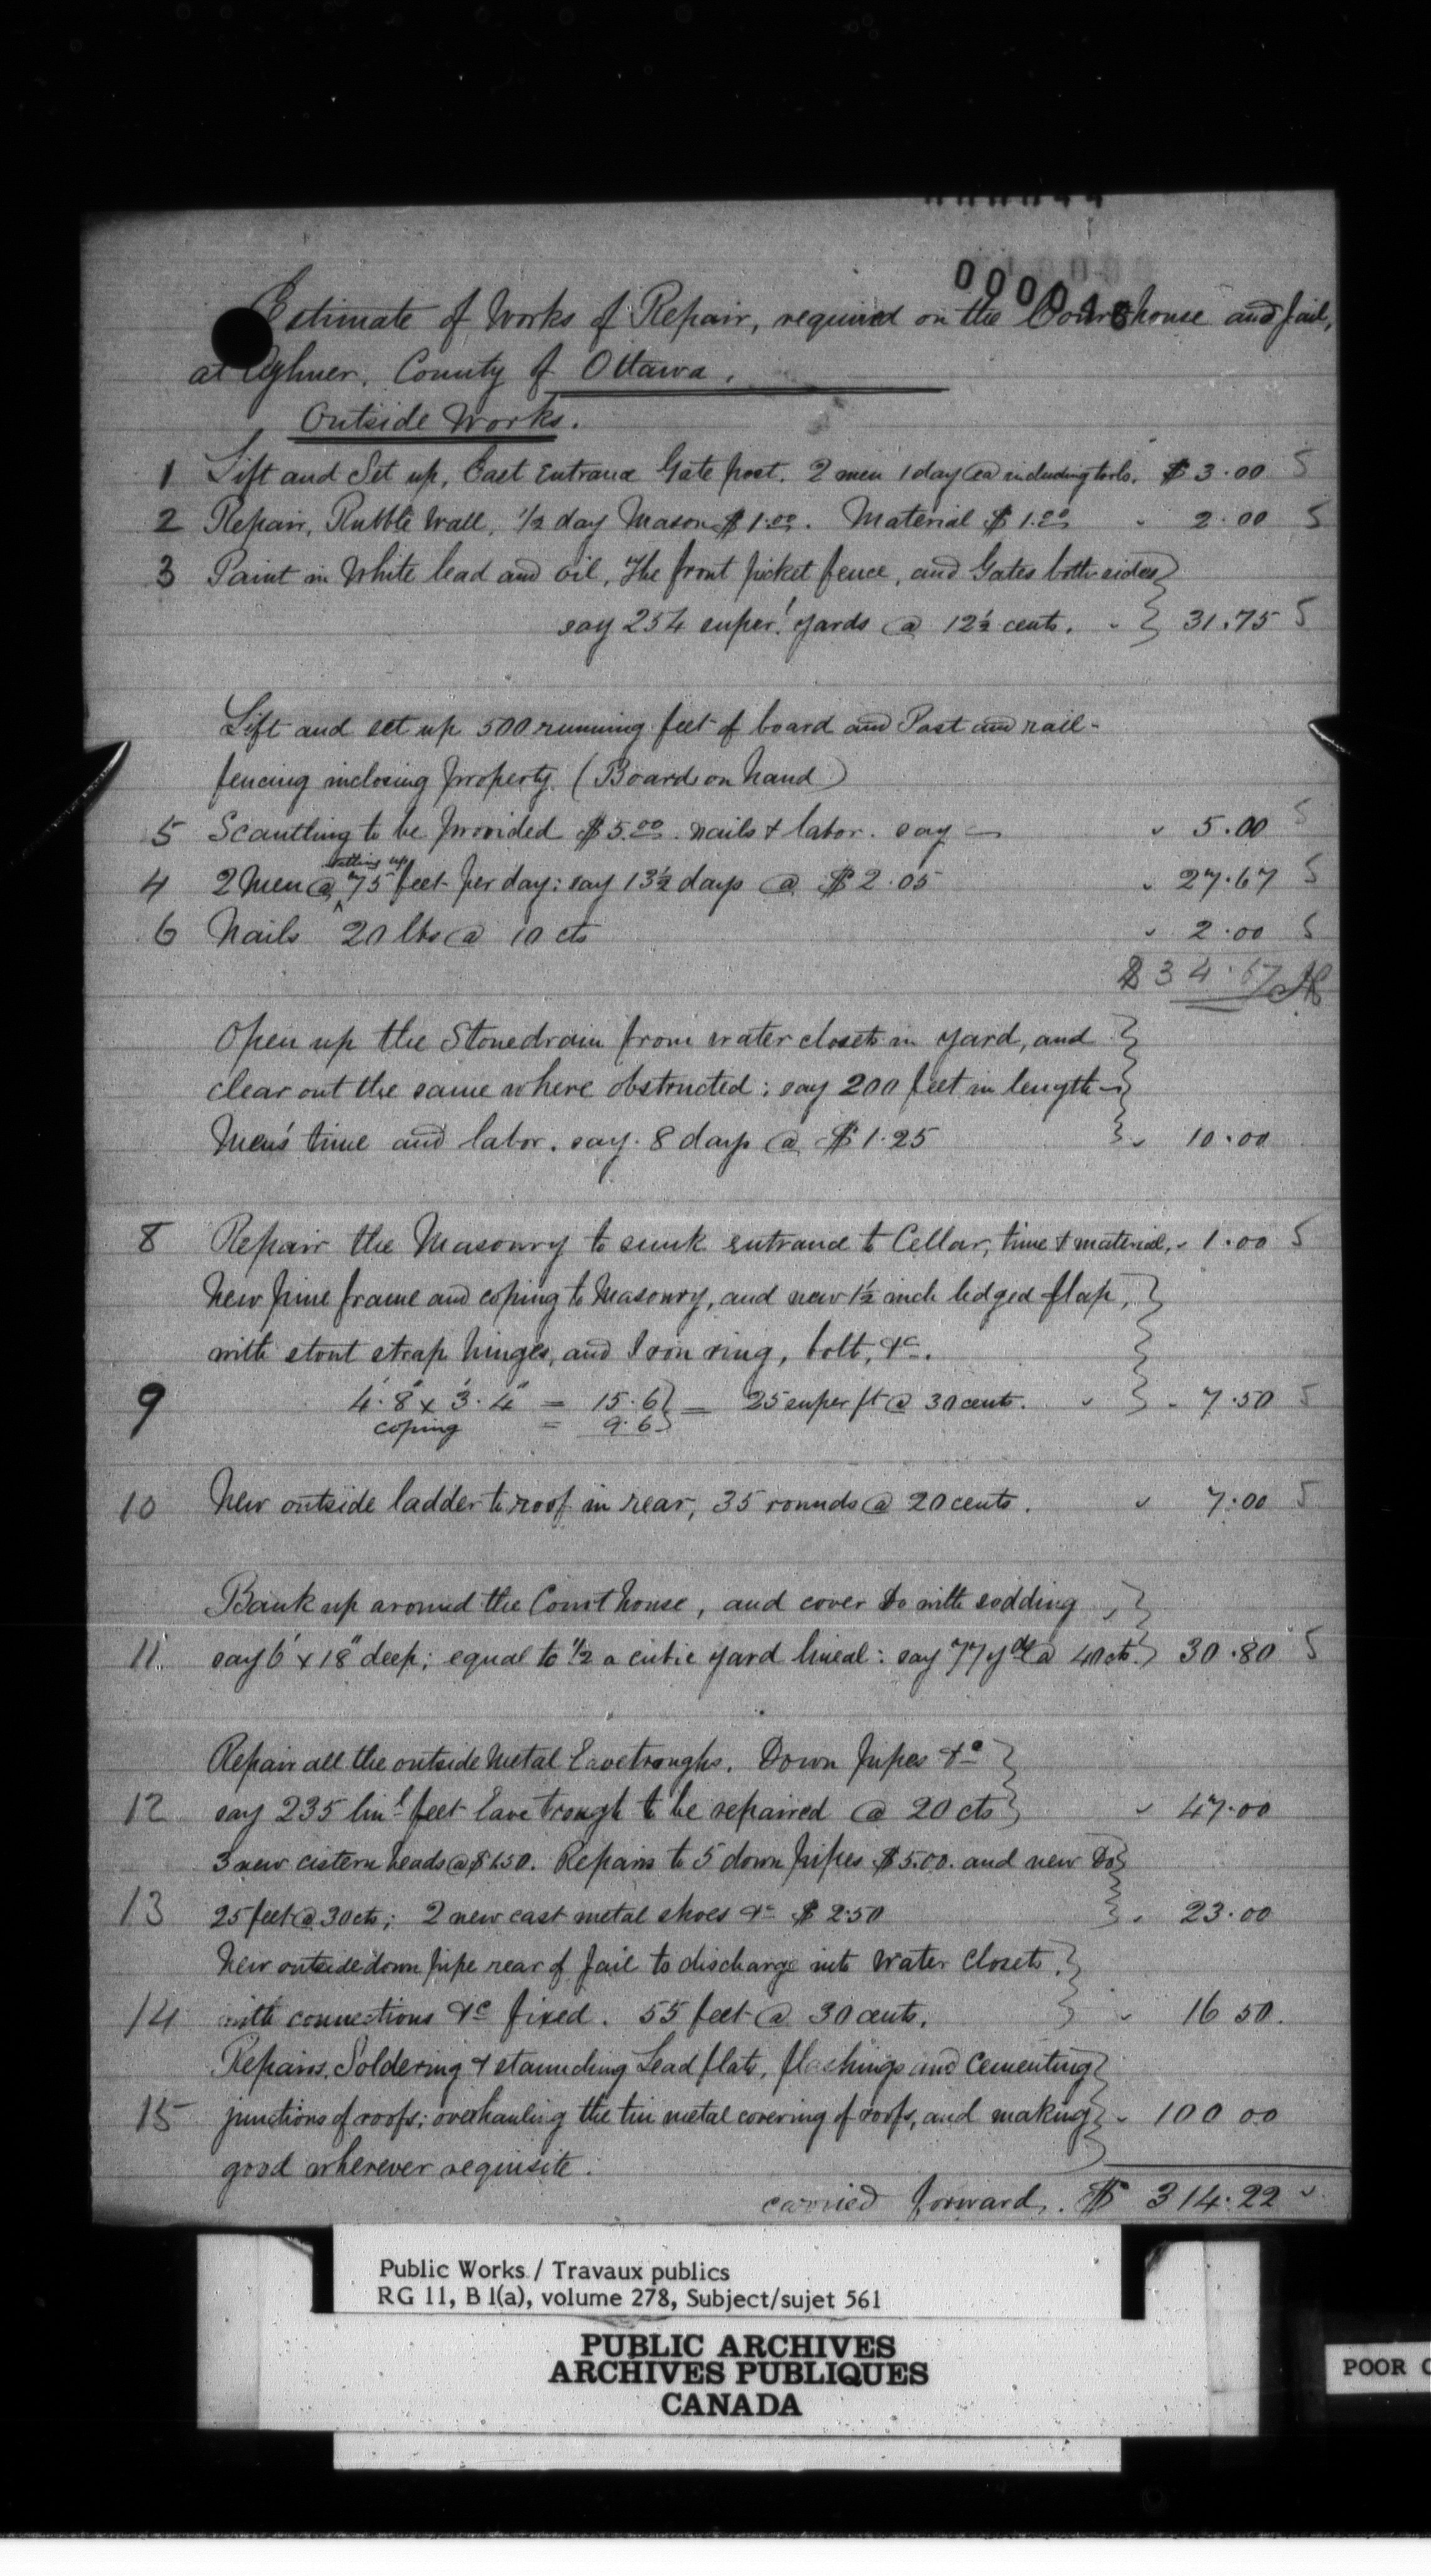 000018
Estimate of Works of Repair, required on the Courthouse and Jail,
at Aylmer, County of Ottawa.
Outside Works.
1 Lift and Set up, East Entrance Gate post. 2 men 1 day @ ea including tools. $ 3.00 5
2 Repair, Rubble Wall, ½ day Mason $1.00. Material $1.00 2.00 5
3 Paint in White lead and oil, The front picket fence, and Gates both sides
say 254 super! yards @ 12½ cents. 31.75 5
Lift and set up 500 running feet of board and Post and rail-
fencing inclosing property. (Boards on hand)
5 Scantling to be provided $5.00. nails & labor. say — 5.00 5
setting up
4 2 Men @ 75 feet per day: say 13½ days @ $2.05 27.67 5
6 Nails 20 lbs @ 10 cts 2.00 5
$ 34.67
Open up the Stonedrain from water closets in yard, and
clear out the same where obstructed; say 200 feet in length —
Men's time and labor. say. 8 days @ $1.25 10.00
8 Repair the Masonry to sunk entrance to Cellar, time & material. 1.00 5
New pine frame and coping to Masonry, and new 1½ inch ledged flap,
with stout strap hinges, and Iron ring, bolt, &c.
9 4'.8" x 3'.4" = 15.6 } = 25 super ft @ 30 cents. 7.50 5
coping = 9.6
10 New outside ladder to roof in rear, 35 rounds @ 20 cents. 7.00 5
Bank up around the Court house, and cover Do with sodding
11. say 6' x 18" deep; equal to ½ a cubic yard lineal: say 77 yds @ 40 cts. 30.80 5
Repair all the outside Metal Eavetroughs. Down pipes &c
12 say 235 linl feet Eave trough to be repaired @ 20 cts 47.00
3 new cistern heads @ $1.50. Repairs to 5 down pipes $5.00. and new Do
13 25 feet @ 30 cts; 2 new cast metal shoes &c $ 2.50 23.00
New outside down pipe rear of Jail to discharge into Water Closets.
14 with connections &c fixed. 55 feet @ 30 cents. 16 50.
Repairs, Soldering & staunching Lead flats, flashings and Cementing
15 junctions of roofs; overhauling the tin metal covering of roofs, and making 100 00
good wherever requisite.
carried forward. $ 314.22
Public Works / Travaux publics
RG 11, B 1(a), volume 278, Subject/sujet 561
PUBLIC ARCHIVES
ARCHIVES PUBLIQUES
CANADA
POOR